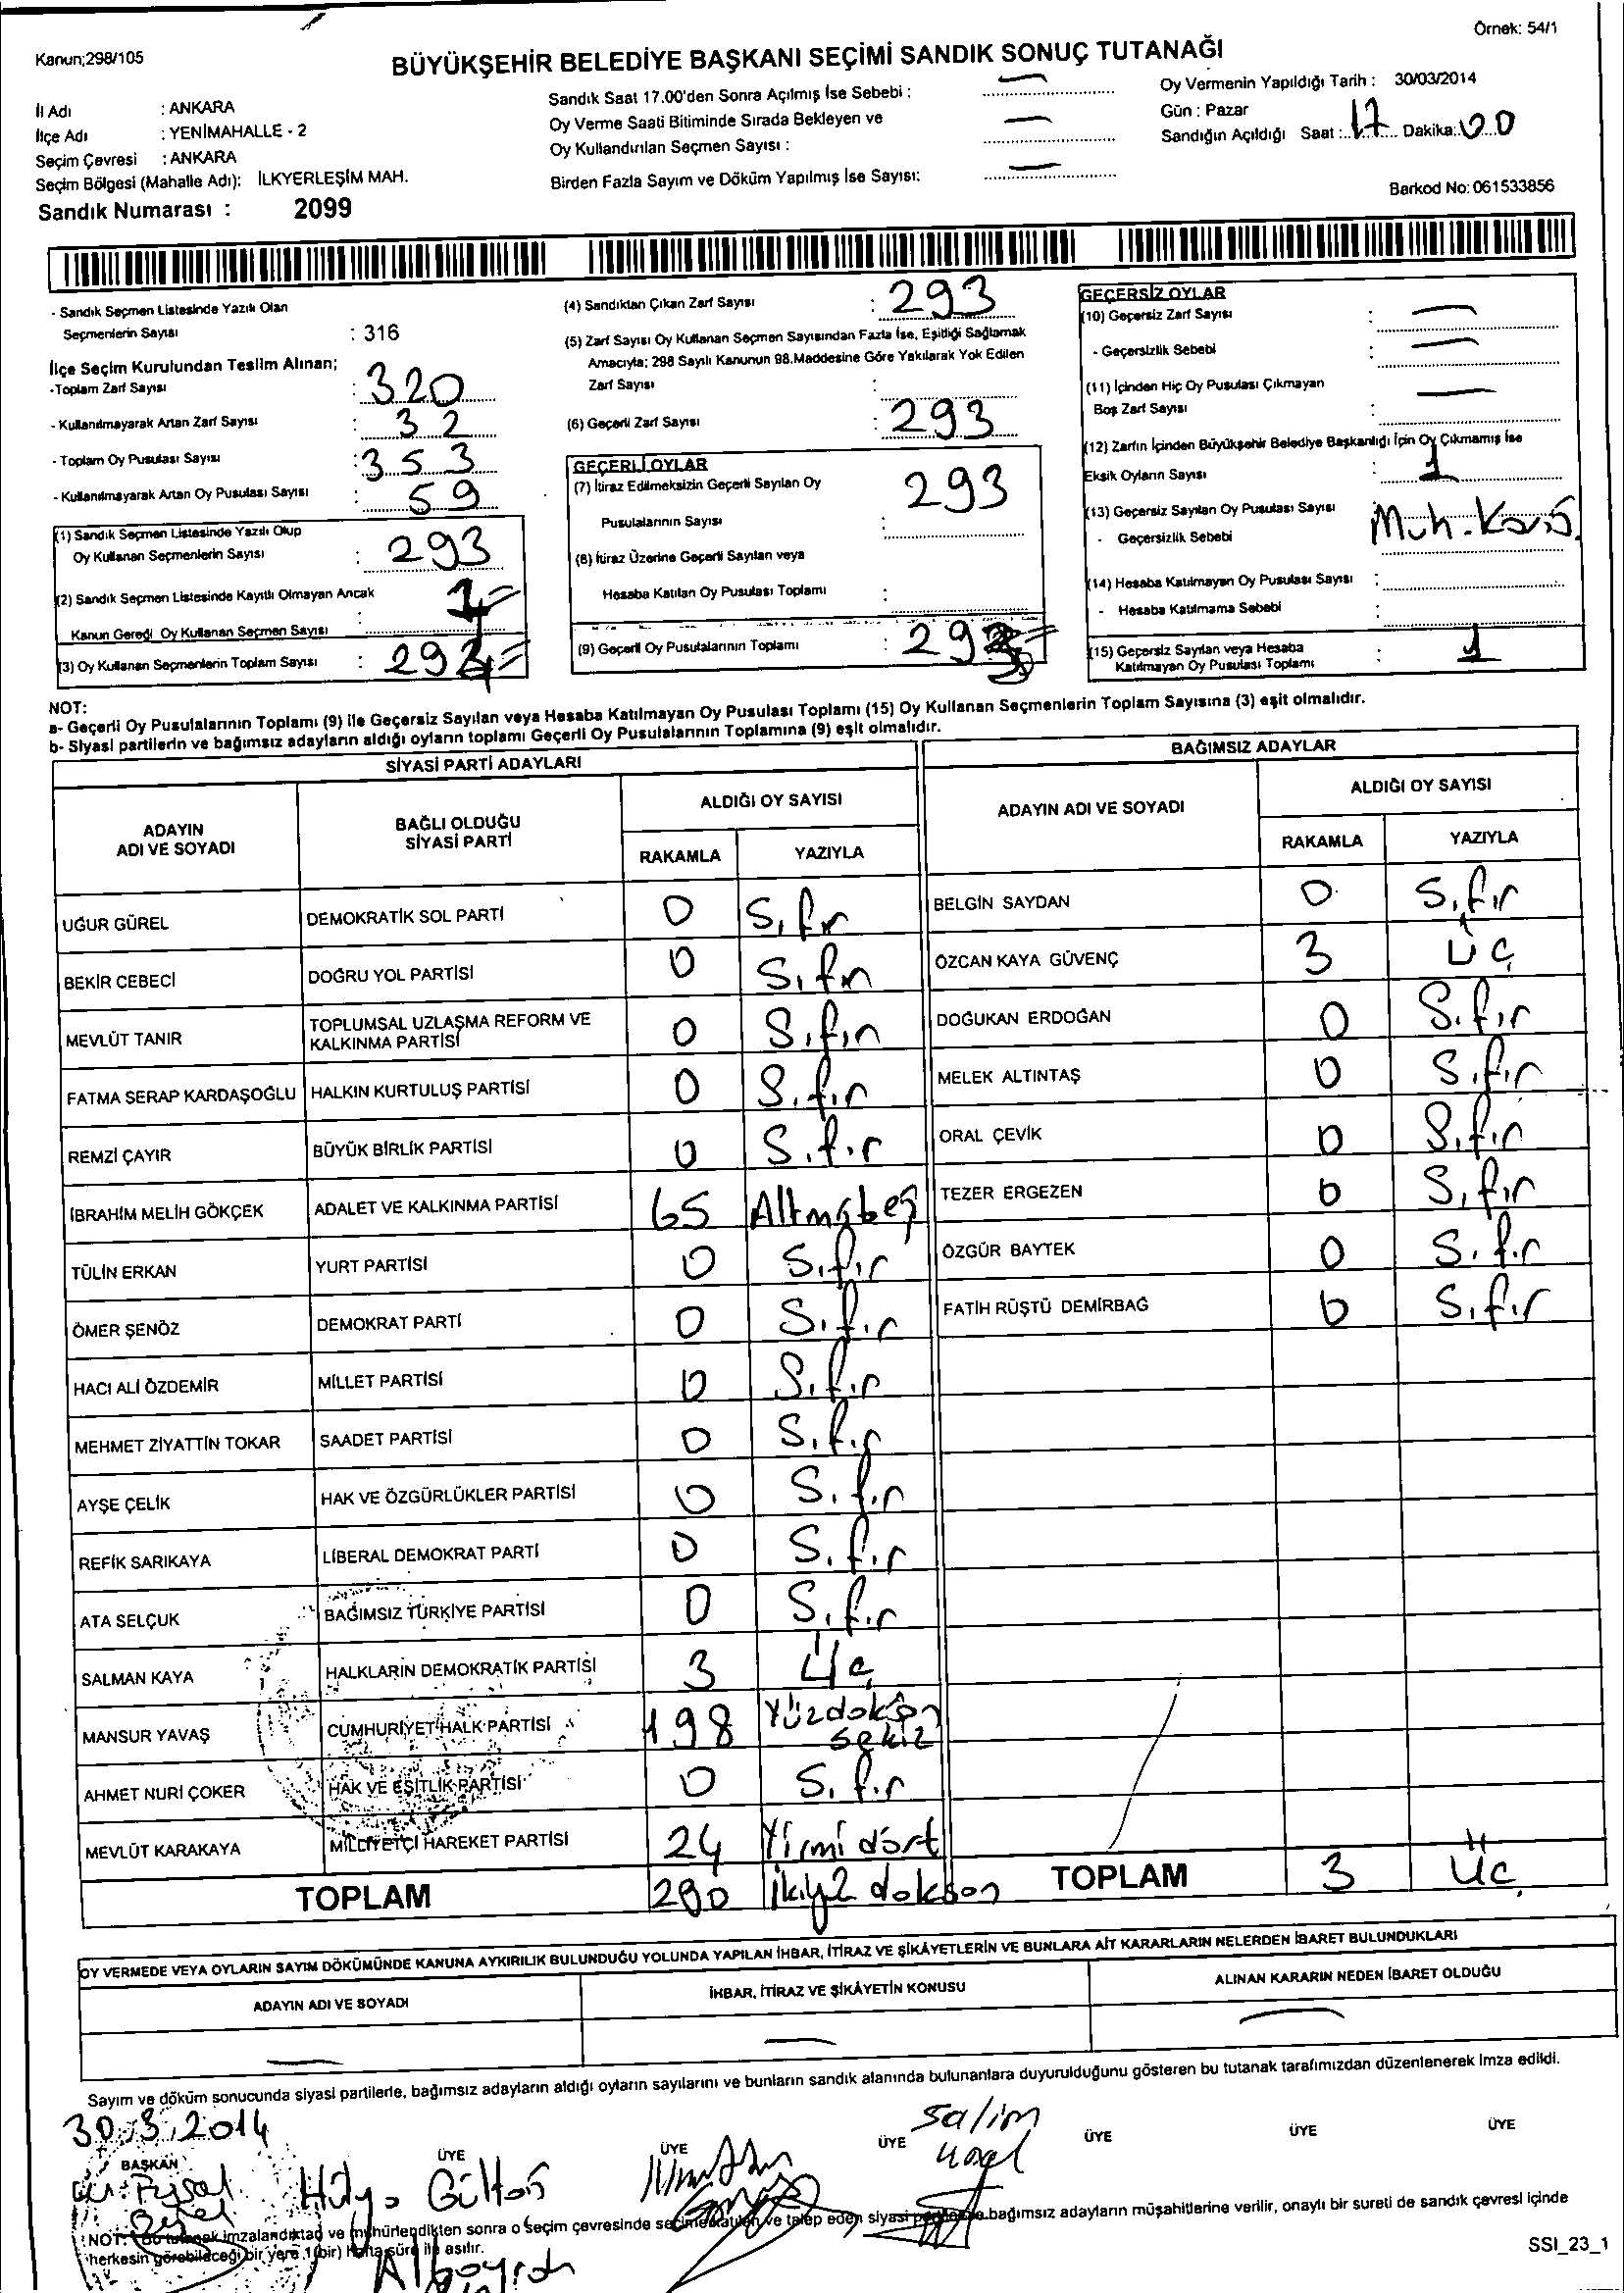 Örnek: 54/1
Kanun;298/105
BÜYÜKŞEHİR BELEDİYE BAŞKANI SEÇİMİ SANDIK SONUÇ TUTANAĞI
İl Adı : ANKARA
İlçe Adı : YENİMAHALLE - 2
Seçim Çevresi : ANKARA
Seçim Bölgesi (Mahalle Adı): İLKYERLEŞİM MAH.
Sandık Numarası : 2099
Sandık Saat 17.00'den Sonra Açılmış İse Sebebi : —
Oy Verme Saati Bitiminde Sırada Bekleyen ve
Oy Kullandırılan Seçmen Sayısı : —
Birden Fazla Sayım ve Döküm Yapılmış İse Sayısı: —
Oy Vermenin Yapıldığı Tarih : 30/03/2014
Gün : Pazar
Sandığın Açıldığı Saat : 17 Dakika: 00
Barkod No: 061533856
- Sandık Seçmen Listesinde Yazılı Olan
Seçmenlerin Sayısı : 316
İlçe Seçim Kurulundan Teslim Alınan;
-Toplam Zarf Sayısı : 320
- Kullanılmayarak Artan Zarf Sayısı : 32
- Toplam Oy Pusulası Sayısı : 353
- Kullanılmayarak Artan Oy Pusulası Sayısı : 59
(1) Sandık Seçmen Listesinde Yazılı Olup
Oy Kullanan Seçmenlerin Sayısı : 293
(2) Sandık Seçmen Listesinde Kayıtlı Olmayan Ancak
Kanun Gereği Oy Kullanan Seçmen Sayısı : 1
(3) Oy Kullanan Seçmenlerin Toplam Sayısı : 294
(4) Sandıktan Çıkan Zarf Sayısı : 293
(5) Zarf Sayısı Oy Kullanan Seçmen Sayısından Fazla İse, Eşitliği Sağlamak
Amacıyla; 298 Sayılı Kanunun 98.Maddesine Göre Yakılarak Yok Edilen
Zarf Sayısı :
(6) Geçerli Zarf Sayısı : 293
GEÇERLİ OYLAR
(7) İtiraz Edilmeksizin Geçerli Sayılan Oy
Pusulalarının Sayısı : 293
(8) İtiraz Üzerine Geçerli Sayılan veya
Hesaba Katılan Oy Pusulası Toplamı :
(9) Geçerli Oy Pusulalarının Toplamı : 293
GEÇERSİZ OYLAR
(10) Geçersiz Zarf Sayısı : —
- Geçersizlik Sebebi : —
(11) İçinden Hiç Oy Pusulası Çıkmayan
Boş Zarf Sayısı : —
(12) Zarfın İçinden Büyükşehir Belediye Başkanlığı İçin Oy Çıkmamış İse
Eksik Oyların Sayısı : 1
(13) Geçersiz Sayılan Oy Pusulası Sayısı
- Geçersizlik Sebebi
(14) Hesaba Katılmayan Oy Pusulası Sayısı :
- Hesaba Katılmama Sebebi :
(15) Geçersiz Sayılan veya Hesaba
Katılmayan Oy Pusulası Toplamı : 1
NOT:
a- Geçerli Oy Pusulalarının Toplamı (9) ile Geçersiz Sayılan veya Hesaba Katılmayan Oy Pusulası Toplamı (15) Oy Kullanan Seçmenlerin Toplam Sayısına (3) eşit olmalıdır.
b- Siyasi partilerin ve bağımsız adayların aldığı oyların toplamı Geçerli Oy Pusulalarının Toplamına (9) eşit olmalıdır.
SİYASİ PARTİ ADAYLARI
ADAYIN ADI VE SOYADI BAĞLI OLDUĞU SİYASİ PARTİ ALDIĞI OY SAYISI
RAKAMLA YAZIYLA
UĞUR GÜREL DEMOKRATİK SOL PARTİ 0 Sıfır
BEKİR CEBECİ DOĞRU YOL PARTİSİ 0 Sıfır
MEVLÜT TANIR TOPLUMSAL UZLAŞMA REFORM VE KALKINMA PARTİSİ 0 Sıfır
FATMA SERAP KARDAŞOĞLU HALKIN KURTULUŞ PARTİSİ 0 Sıfır
REMZİ ÇAYIR BÜYÜK BİRLİK PARTİSİ 0 Sıfır
İBRAHİM MELİH GÖKÇEK ADALET VE KALKINMA PARTİSİ 65 Altmışbeş
TÜLİN ERKAN YURT PARTİSİ 0 Sıfır
ÖMER ŞENÖZ DEMOKRAT PARTİ 0 Sıfır
HACI ALİ ÖZDEMİR MİLLET PARTİSİ 0 Sıfır
MEHMET ZİYATTİN TOKAR SAADET PARTİSİ 0 Sıfır
AYŞE ÇELİK HAK VE ÖZGÜRLÜKLER PARTİSİ 0 Sıfır
REFİK SARIKAYA LİBERAL DEMOKRAT PARTİ 0 Sıfır
ATA SELÇUK BAĞIMSIZ TÜRKİYE PARTİSİ 0 Sıfır
SALMAN KAYA HALKLARIN DEMOKRATİK PARTİSİ 3 Üç
MANSUR YAVAŞ CUMHURİYET HALK PARTİSİ 198 Yüzdoksan sekiz
AHMET NURİ ÇOKER HAK VE EŞİTLİK PARTİSİ 0 Sıfır
MEVLÜT KARAKAYA MİLLİYETÇİ HAREKET PARTİSİ 24 Yirmi dört
TOPLAM 290 İkiyüz doksan
BAĞIMSIZ ADAYLAR
ADAYIN ADI VE SOYADI ALDIĞI OY SAYISI
RAKAMLA YAZIYLA
BELGİN SAYDAN 0 Sıfır
ÖZCAN KAYA GÜVENÇ 3 Üç
DOĞUKAN ERDOĞAN 0 Sıfır
MELEK ALTINTAŞ 0 Sıfır
ORAL ÇEVİK 0 Sıfır
TEZER ERGEZEN 0 Sıfır
ÖZGÜR BAYTEK 0 Sıfır
FATİH RÜŞTÜ DEMİRBAĞ 0 Sıfır
TOPLAM 3 Üç
OY VERMEDE VEYA OYLARIN SAYIM DÖKÜMÜNDE KANUNA AYKIRILIK BULUNDUĞU YOLUNDA YAPILAN İHBAR, İTİRAZ VE ŞİKÂYETLERİN VE BUNLARA AİT KARARLARIN NELERDEN İBARET BULUNDUKLARI
ADAYIN ADI VE SOYADI İHBAR, İTİRAZ VE ŞİKÂYETİN KONUSU ALINAN KARARIN NEDEN İBARET OLDUĞU
— — —
Sayım ve döküm sonucunda siyasi partilerle, bağımsız adayların aldığı oyların sayılarını ve bunların sandık alanında bulunanlara duyurulduğunu gösteren bu tutanak tarafımızdan düzenlenerek imza edildi.
30.3.2014
BAŞKAN ÜYE ÜYE ÜYE ÜYE ÜYE ÜYE
Salim
Hülya
NOT: Bu tutanak imzalandıktan ve mühürlendikten sonra o seçim çevresinde seçime katılan ve talep eden siyasi partilerle bağımsız adayların müşahitlerine verilir, onaylı bir sureti de sandık çevresi içinde
herkesin görebileceği bir yere 1 (bir) hafta süre ile asılır.
SSI_23_1